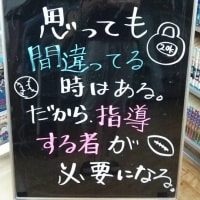 思っても
間違ってる
時はある。
だから、指導
する者が
必要になる。